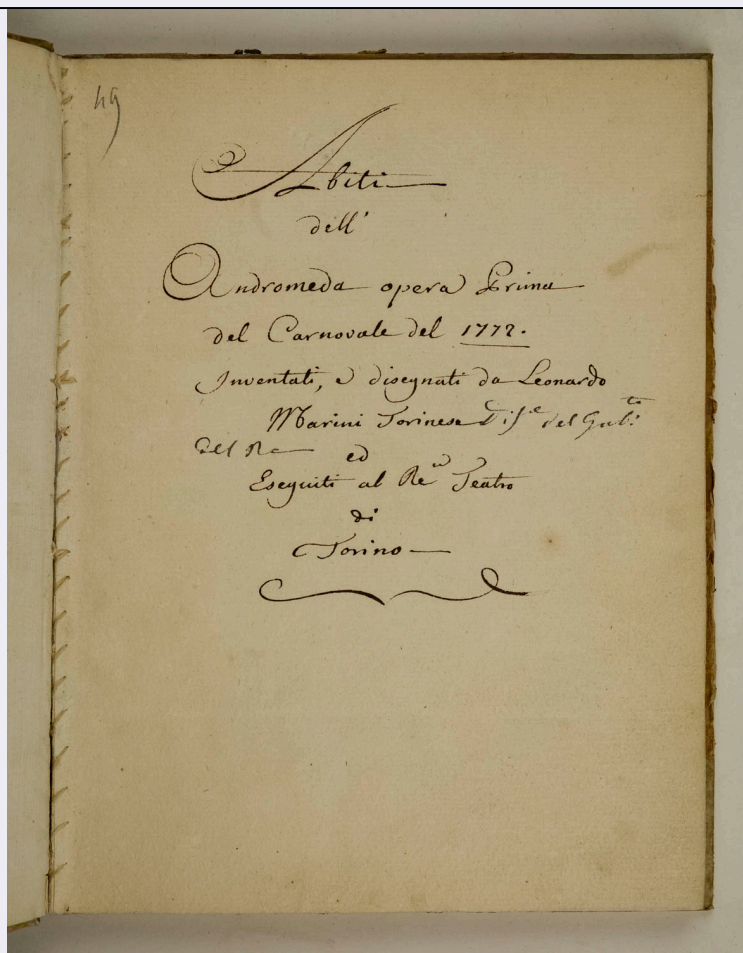 49
Abiti
dell'
Andromeda opera Prima
del Carnovale del 1772.
Inventati, e disegnati da Leonardo
Marini Torinese Dis.e del Gab.to
del Re
ed
Eseguiti al Reo Teatro
di
Torino